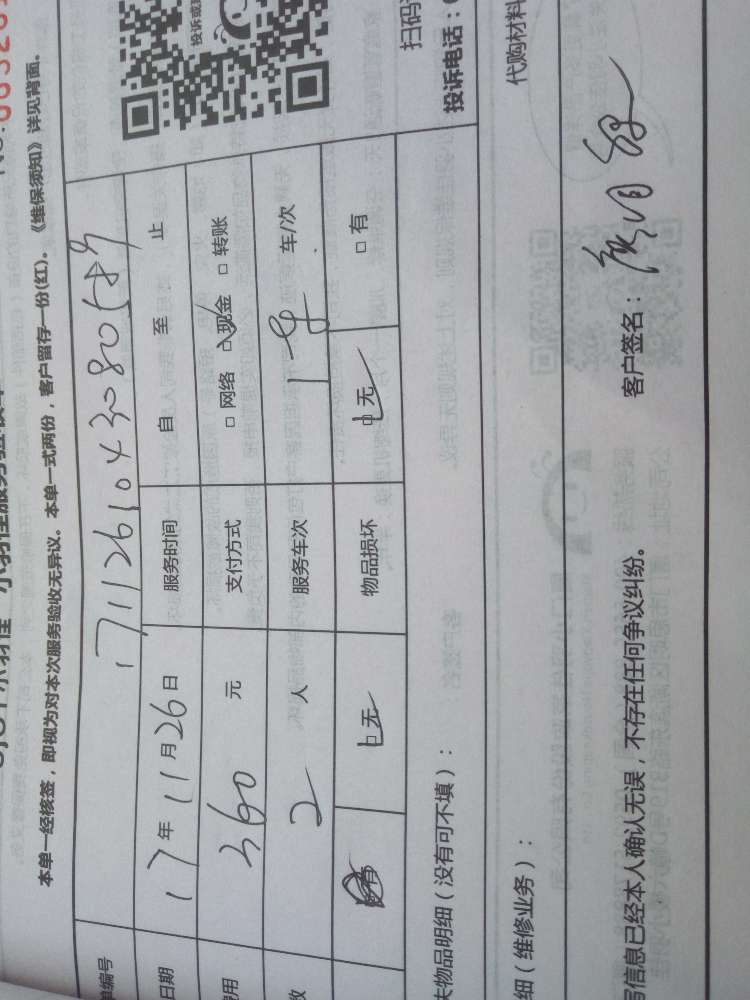 本单一经核签，即视为对本次服务验收无异议。本单一式两份，客户留存一份(红)。《维保须知》详见背面。
单编号 171126104308058
日期 17年11月26日 服务时间 自 至 止
费用 360 元 支付方式 □网络 □现金 □转账
2 人 服务车次 1 车/次
有 □无 物品损坏 □无 □有
扫码
投诉电话：
失物品明细（没有可不填）：
细（维修业务）：
代购材料
写信息已经本人确认无误，不存在任何争议纠纷。 客户签名：